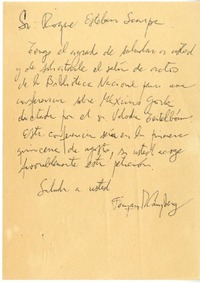 Sr. Roque Esteban Scarpa
Tengo el agrado de saludar a usted
y de solicitarle el salón de actos
de la Biblioteca Nacional para una
conferencia sobre Máximo Gorki
dictada por el sr. Volodia Teitelboim.
Esta conferencia sería en la primera
quincena de agosto, si usted acoge
favorablemente esta petición.
Saluda a usted